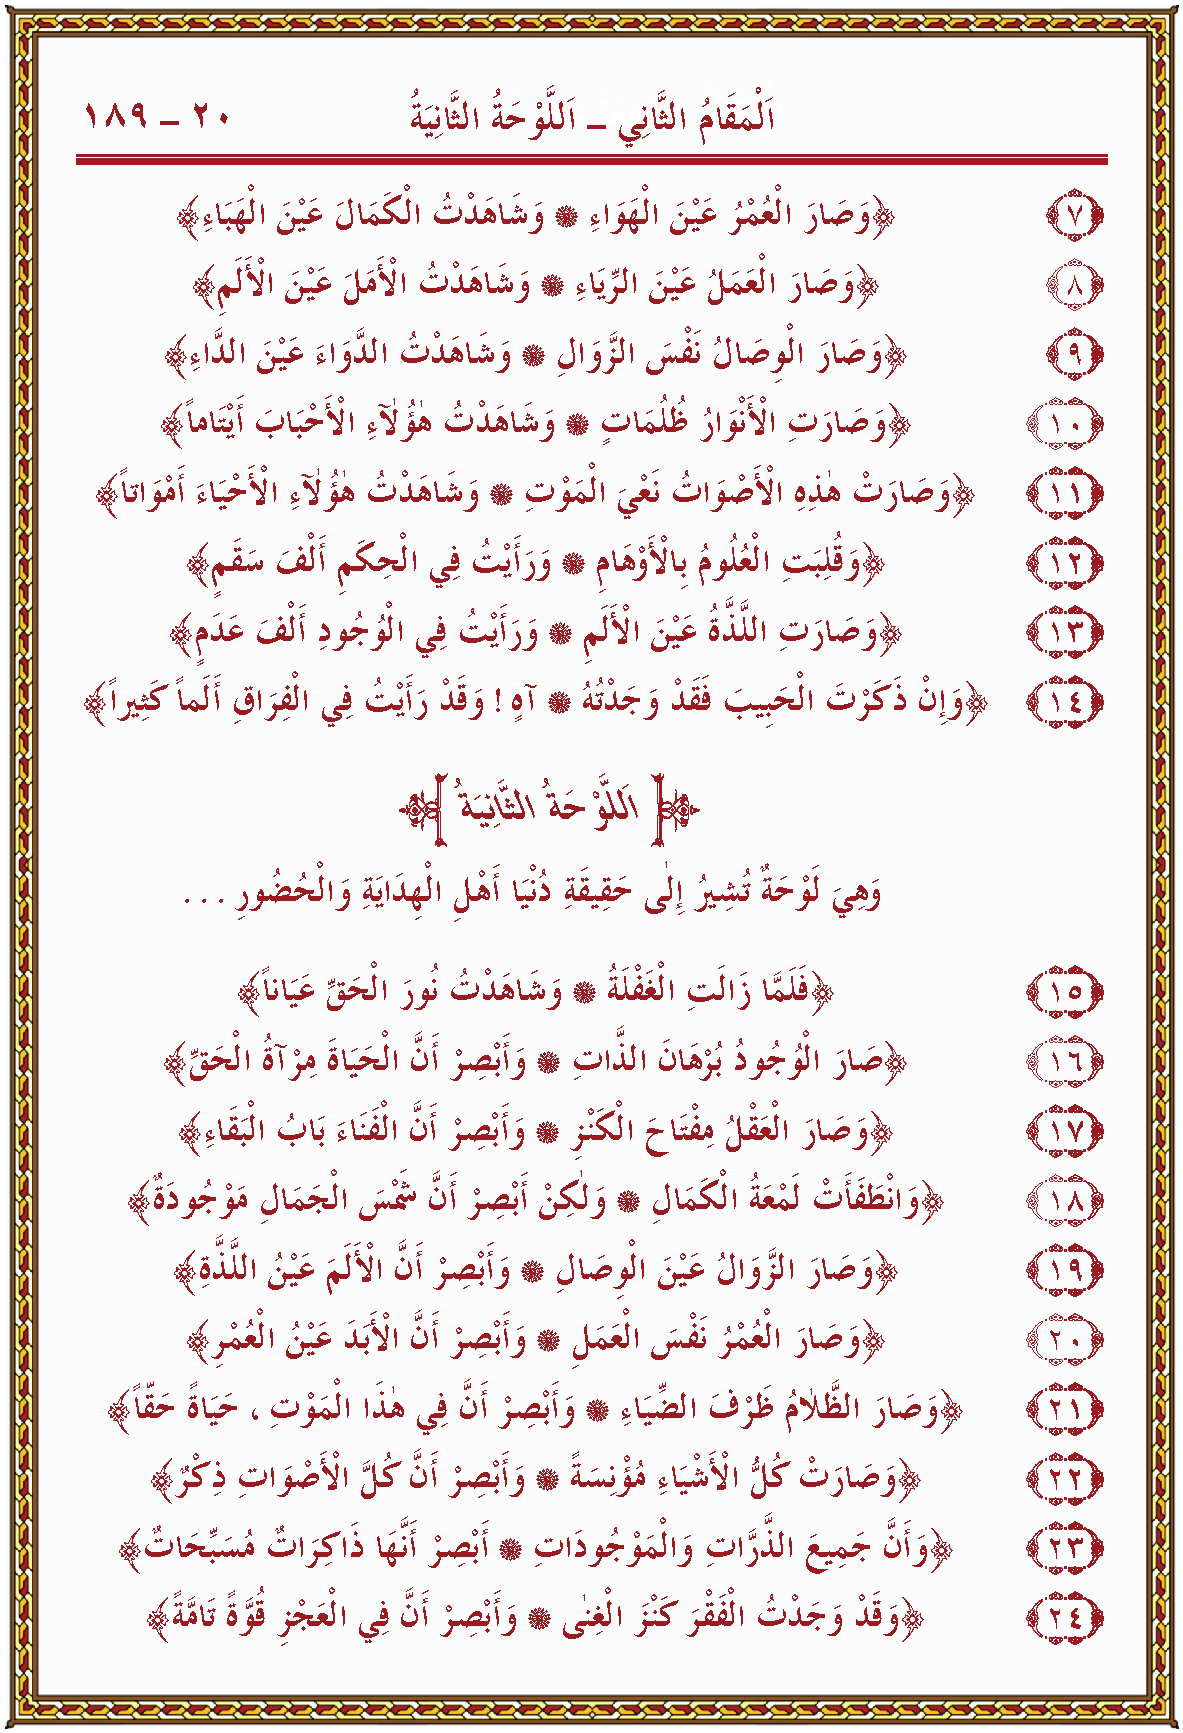 اَلْمَقَامُ الثَّانِي ــ اَللَّوْحَةُ الثَّانِيَةُ ٢٠ ــ ١٨٩
٧ ﴿وَصَارَ الْعُمْرُ عَيْنَ الْهَوَاءِ ۞ وَشَاهَدْتُ الْكَمَالَ عَيْنَ الْهَبَاءِ﴾
٨ ﴿وَصَارَ الْعَمَلُ عَيْنَ الرِّيَاءِ ۞ وَشَاهَدْتُ الْأَمَلَ عَيْنَ الْأَلَمِ﴾
٩ ﴿وَصَارَ الْوِصَالُ نَفْسَ الزَّوَالِ ۞ وَشَاهَدْتُ الدَّوَاءَ عَيْنَ الدَّاءِ﴾
١٠ ﴿وَصَارَتِ الْأَنْوَارُ ظُلُمَاتٍ ۞ وَشَاهَدْتُ هٰؤُلَآءِ الْأَحْبَابَ أَيْتَاماً﴾
١١ ﴿وَصَارَتْ هٰذِهِ الْأَصْوَاتُ نَعْيَ الْمَوْتِ ۞ وَشَاهَدْتُ هٰؤُلَآءِ الْأَحْيَاءَ أَمْوَاتاً﴾
١٢ ﴿وَقُلِبَتِ الْعُلُومُ بِالْأَوْهَامِ ۞ وَرَأَيْتُ فِي الْحِكَمِ أَلْفَ سَقَمٍ﴾
١٣ ﴿وَصَارَتِ اللَّذَّةُ عَيْنَ الْأَلَمِ ۞ وَرَأَيْتُ فِي الْوُجُودِ أَلْفَ عَدَمٍ﴾
١٤ ﴿وَإِنْ ذَكَرْتَ الْحَبِيبَ فَقَدْ وَجَدْتُهُ ۞ آهٍ ! وَقَدْ رَأَيْتُ فِي الْفِرَاقِ أَلَماً كَثِيراً﴾
اَللَّوْحَةُ الثَّانِيَةُ
وَهِيَ لَوْحَةٌ تُشِيرُ إِلٰى حَقِيقَةِ دُنْيَا أَهْلِ الْهِدَايَةِ وَالْحُضُورِ . . .
١٥ ﴿فَلَمَّا زَالَتِ الْغَفْلَةُ ۞ وَشَاهَدْتُ نُورَ الْحَقِّ عَيَاناً﴾
١٦ ﴿صَارَ الْوُجُودُ بُرْهَانَ الذَّاتِ ۞ وَأَبْصِرْ أَنَّ الْحَيَاةَ مِرْآةُ الْحَقِّ﴾
١٧ ﴿وَصَارَ الْعَقْلُ مِفْتَاحَ الْكَنْزِ ۞ وَأَبْصِرْ أَنَّ الْفَنَاءَ بَابُ الْبَقَاءِ﴾
١٨ ﴿وَانْطَفَأَتْ لَمْعَةُ الْكَمَالِ ۞ وَلٰكِنْ أَبْصِرْ أَنَّ شَمْسَ الْجَمَالِ مَوْجُودَةٌ﴾
١٩ ﴿وَصَارَ الزَّوَالُ عَيْنَ الْوِصَالِ ۞ وَأَبْصِرْ أَنَّ الْأَلَمَ عَيْنُ اللَّذَّةِ﴾
٢٠ ﴿وَصَارَ الْعُمْرُ نَفْسَ الْعَمَلِ ۞ وَأَبْصِرْ أَنَّ الْأَبَدَ عَيْنُ الْعُمْرِ﴾
٢١ ﴿وَصَارَ الظَّلَامُ ظَرْفَ الضِّيَاءِ ۞ وَأَبْصِرْ أَنَّ فِي هٰذَا الْمَوْتِ ، حَيَاةً حَقّاً﴾
٢٢ ﴿وَصَارَتْ كُلُّ الْأَشْيَاءِ مُؤْنِسَةً ۞ وَأَبْصِرْ أَنَّ كُلَّ الْأَصْوَاتِ ذِكْرٌ﴾
٢٣ ﴿وَأَنَّ جَمِيعَ الذَّرَّاتِ وَالْمَوْجُودَاتِ ۞ أَبْصِرْ أَنَّهَا ذَاكِرَاتٌ مُسَبِّحَاتٌ﴾
٢٤ ﴿وَقَدْ وَجَدْتُ الْفَقْرَ كَنْزَ الْغِنٰى ۞ وَأَبْصِرْ أَنَّ فِي الْعَجْزِ قُوَّةً تَامَّةً﴾